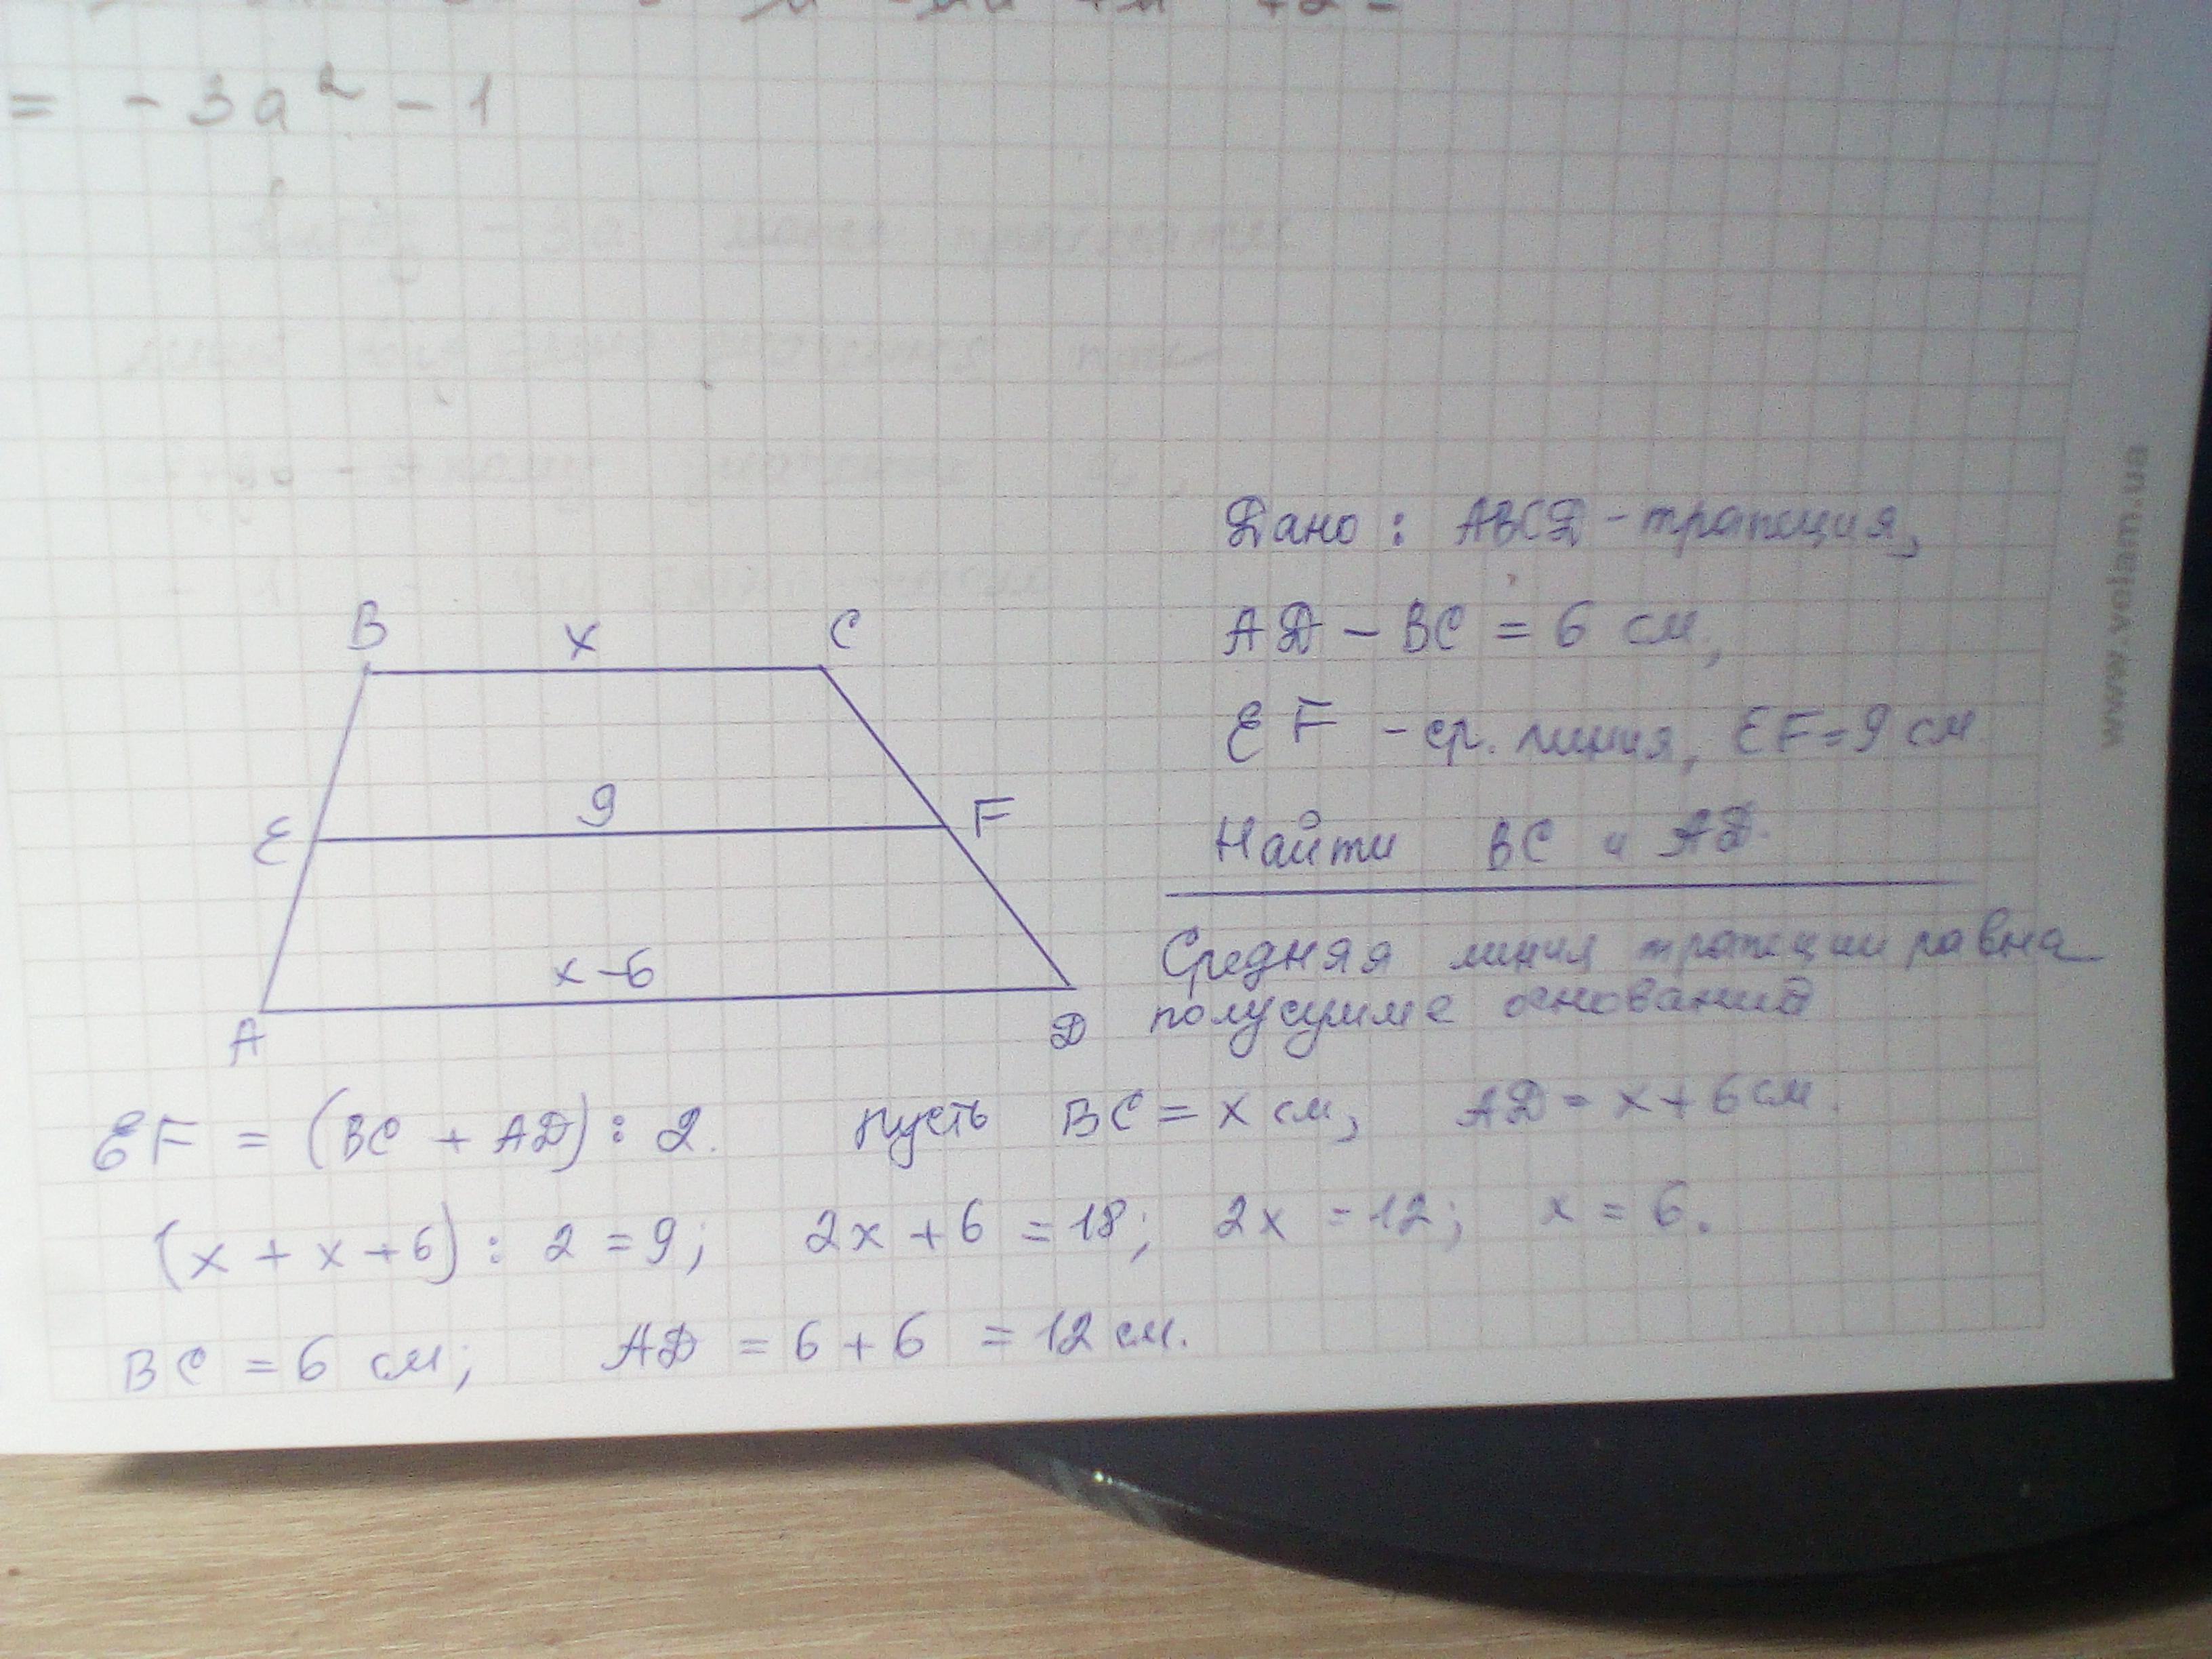 = - 3a² - 1
Дано: ABCD - трапеция,
AD - BC = 6 см,
EF - ср. линия, EF = 9 см
Найти BC и AD.
B x C
E 9 F
x - 6
A D
Средняя линия трапеции равна
полусумме оснований
EF = (BC + AD) : 2. пусть BC = x см, AD = x + 6 см.
(x + x + 6) : 2 = 9; 2x + 6 = 18; 2x = 12; x = 6.
BC = 6 см; AD = 6 + 6 = 12 см.
www.volam.ua